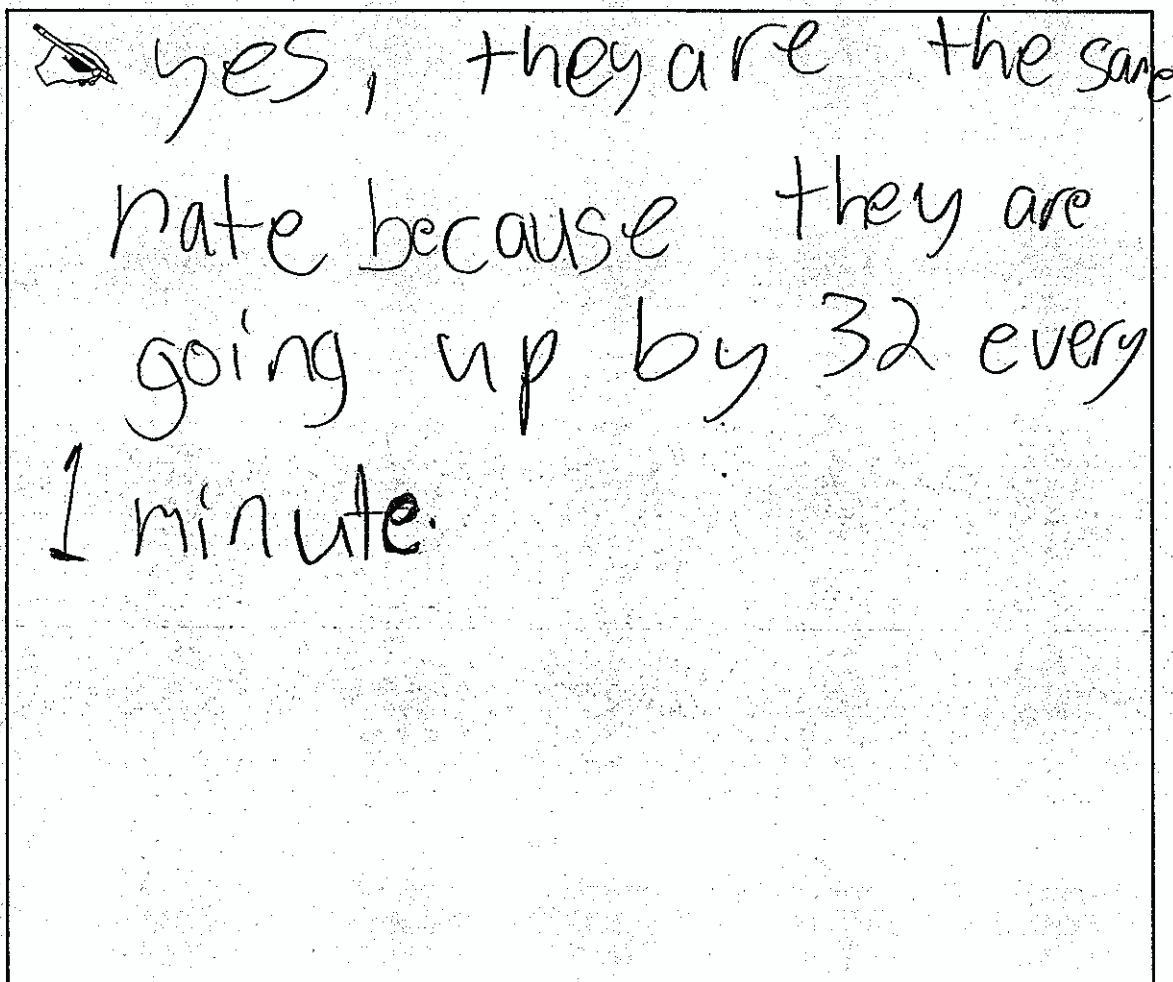 yes, they are the same
rate because they are
going up by 32 every
1 minute.